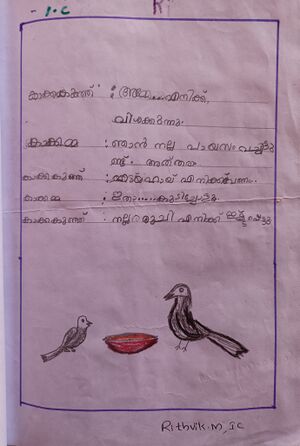 1.C
കാക്കകുഞ്ഞ് : അമ്മേ.....എനിക്ക്
വിശക്കുന്നു.
കാക്കമ്മ : ഞാൻ നല്ല പായസം വച്ചിട്ടു
ണ്ട്.
കാക്കകുഞ്ഞ് :
കാക്കമ്മ : ഇതാ.....കുടിച്ചോളൂ.
കാക്കകുഞ്ഞ് : നല്ല രുചി എനിക്ക് ഇഷ്ട്ടപ്പെട്ടു
Rithvik.M, I C